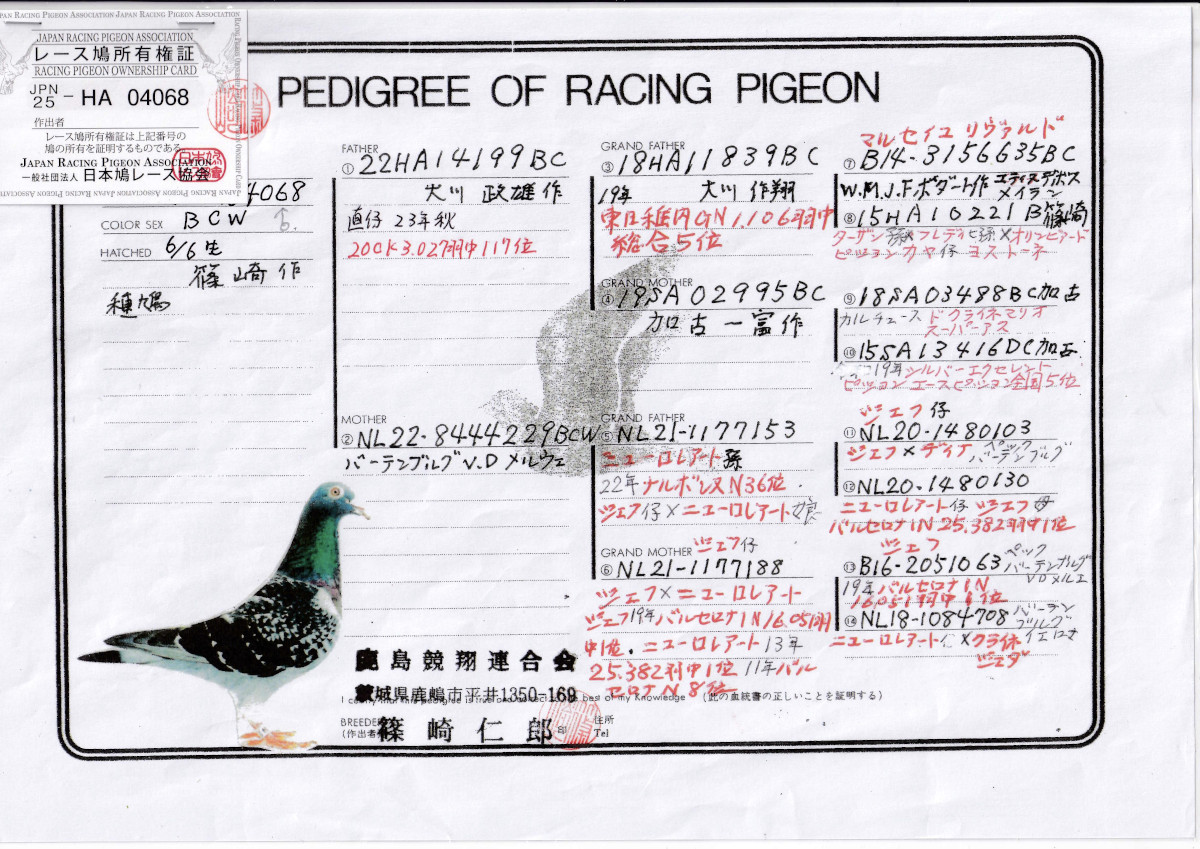 JAPAN RACING PIGEON ASSOCIATION JAPAN RACING PIGEON ASSOCIATION
JAPAN RACING PIGEON ASSOCIATION
レース鳩所有権証
RACING PIGEON OWNERSHIP CARD
JPN 25 - HA 04068
作出者
レース鳩所有権証は上記番号の
鳩の所有を証明するものである
JAPAN RACING PIGEON ASSOCIATION
一般社団法人 日本鳩レース協会
PEDIGREE OF RACING PIGEON
4068
COLOR SEX BCW ♂
HATCHED 6/6生
篠崎作
種鳩
FATHER
① 22HA14199BC
大川 政雄作
直仔 23年秋
200K3.027羽中117位
MOTHER
② NL22-8444229BCW
バーテンブルグV.Dメルウェ
GRAND FATHER
③ 18HA11839BC
19年 大川作翔
東日稚内GN1.106羽中
総合5位
GRAND MOTHER
④ 19SA02995BC
加古一富作
GRAND FATHER
⑤ NL21-1177153
ニューロレアート孫
22年ナルボンヌN36位.
ジェフ仔×ニューロレアート娘
GRAND MOTHER ジェフ仔
⑥ NL21-1177188
ジェフ×ニューロレアート
ジェフ19年バルセロナIN16.051羽
中1位. ニューロレアート13年
25.382羽中1位 11年バル
セロナN8位
マルセイユ リヴァルド
⑦ B14-3156635BC
W.M.J.F.ボダート作 エティエンヌデボス
×イラン
⑧ 15HA10221B篠崎
ターザン孫×フレディ孫×オリンピアード
ピジョン カヤ仔 ヨストーネ
⑨ 18SA03488BC加古
カルチュース ドクライネマリオ
スーパーアス
⑩ 15SA13416DC加古
19年シルバーエクセレント
ピジョンエースピジョン全国5位
ジェフ仔
⑪ NL20-1480103
ジェフ×ディナ ペック
バーテンブルグ
⑫ NL20-1480130
ニューロレアート仔 ジェフ母
バルセロナIN25.382羽中1位
ジェフ
⑬ B16-2051063 ペック
バーテンブルグ
V.Dメルエ
19年バルセロナIN
16051羽中1位
⑭ NL18-1084708 バーテン
ブルグ
ニューロレアート仔×クライネ
ジェダ
鹿島競翔連合会
茨城県鹿嶋市平井1350-169
I certify that this pedigree is true and correct best of my Knowledge (此の血統書の正しいことを証明する)
BREEDER
(作出者) 篠崎仁郎 印 住所
Tel